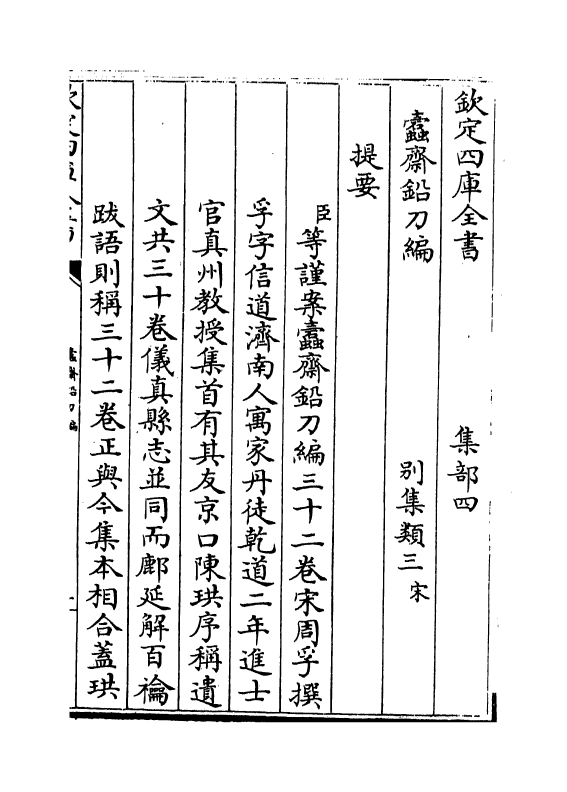 欽定四庫全書　集部四
蠹齋鉛刀編　别集類三宋
提要
臣等謹案蠹齋鉛刀編三十二卷宋周孚撰
孚字信道濟南人寓家丹徒乾道二年進士
官真州教授集首有其友京口陳珙序稱遺
文共三十卷儀真縣志並同而鄜延解百禴
跋語則稱三十二卷正與今集本相合蓋珙
蠹齋鉛刀編